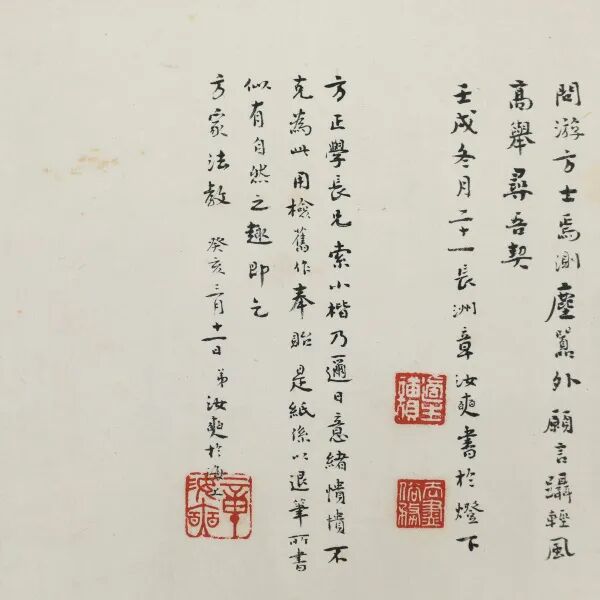 問游方士焉測塵囂外願言躡輕風
高舉尋吾契
壬戌冬月二十一長洲章汝奭書於燈下
方正學長兄索小楷乃邇日意緒憒憒不
克為此用檢舊作奉貽是紙係以退筆所書
似有自然之趣即乞
方家法教 癸亥三月十一日弟汝奭於海上
章汝奭